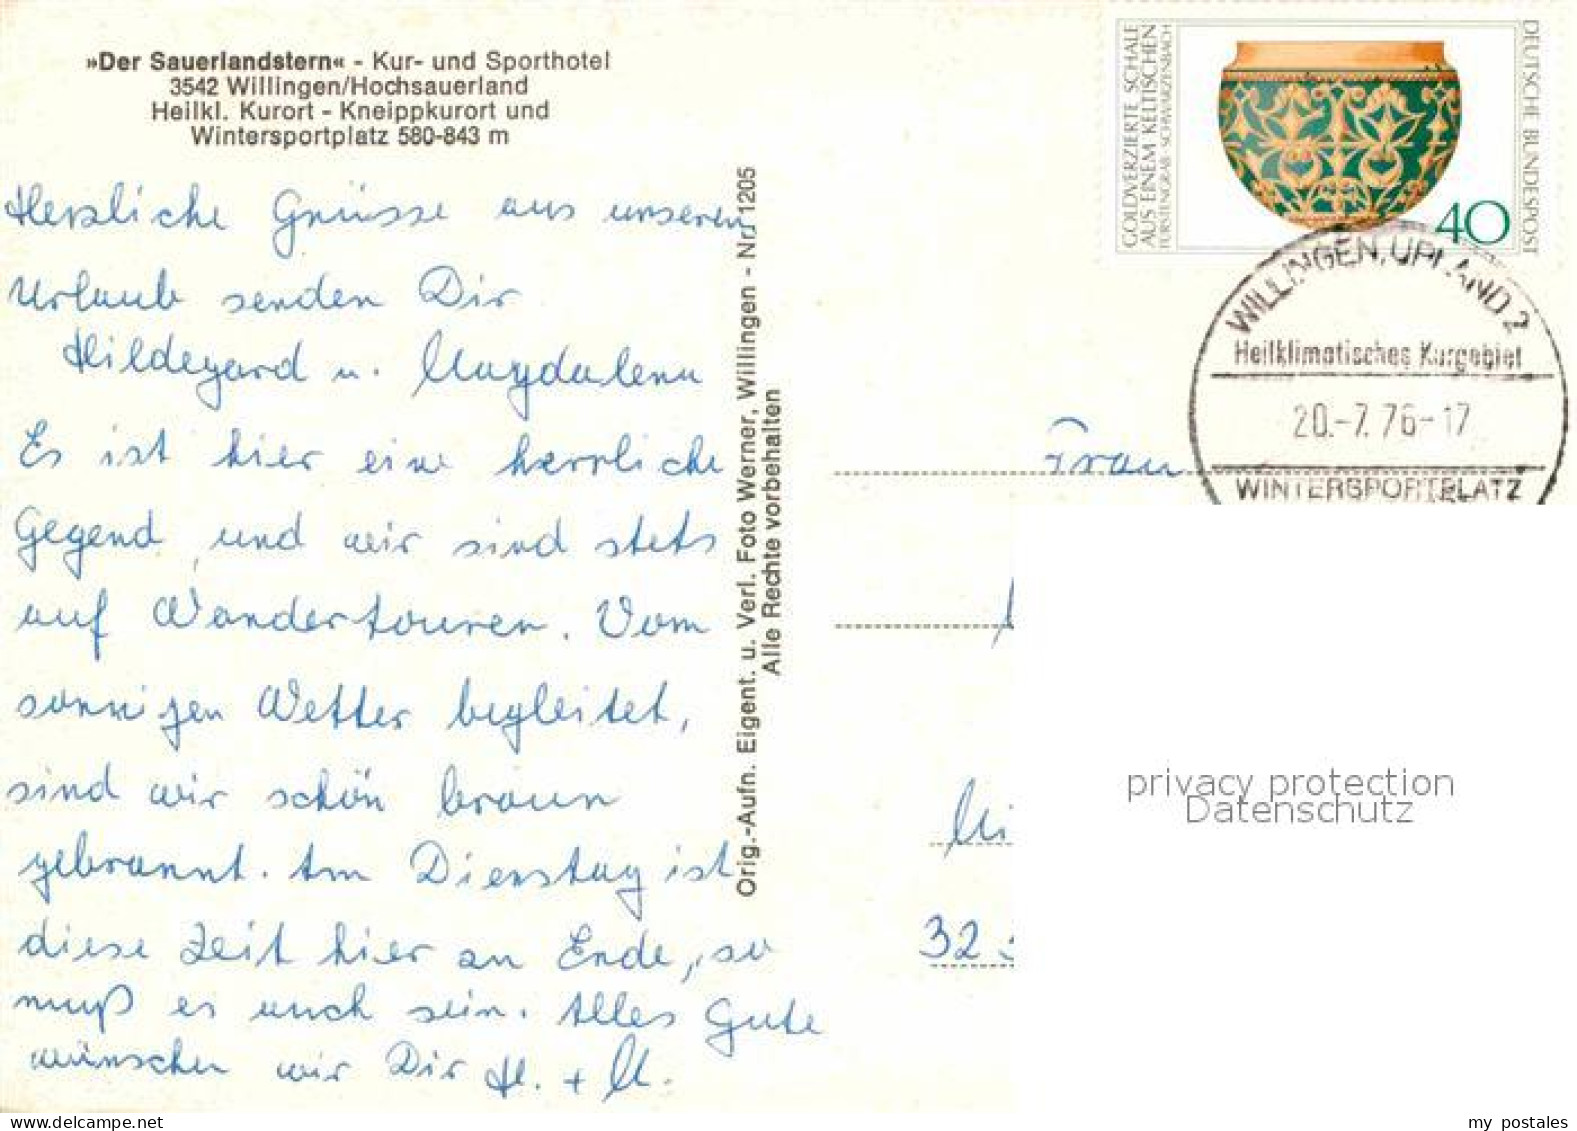 »Der Sauerlandstern« - Kur- und Sporthotel
3542 Willingen/Hochsauerland
Heilkl. Kurort - Kneippkurort und
Wintersportplatz 580-843 m
Herzliche Grüsse aus unseren
Urlaub senden Dir
Hildegard u. Magdalena
Es ist hier eine herrliche
Gegend und wir sind stets
auf Wandertouren. Vom
sonnigen Wetter begleitet,
sind wir schön braun
gebrannt. Am Dienstag ist
diese Zeit hier an Ende, so
muß es auch sein. Alles Gute
wünschen wir Dir H. + M.
Orig.-Aufn. Eigent. u. Verl. Foto Werner, Willingen - Nr. 1205
Alle Rechte vorbehalten
GOLDVERZIERTE SCHALE
AUS EINEM KELTISCHEN
FÜRSTENGRAB · SCHWARZENBACH
DEUTSCHE BUNDESPOST
40
WILLINGEN, UPLAND 2
Heilklimatisches Kurgebiet
20.-7.76-17
WINTERSPORTPLATZ
Frau
32
privacy protection
Datenschutz
my postales